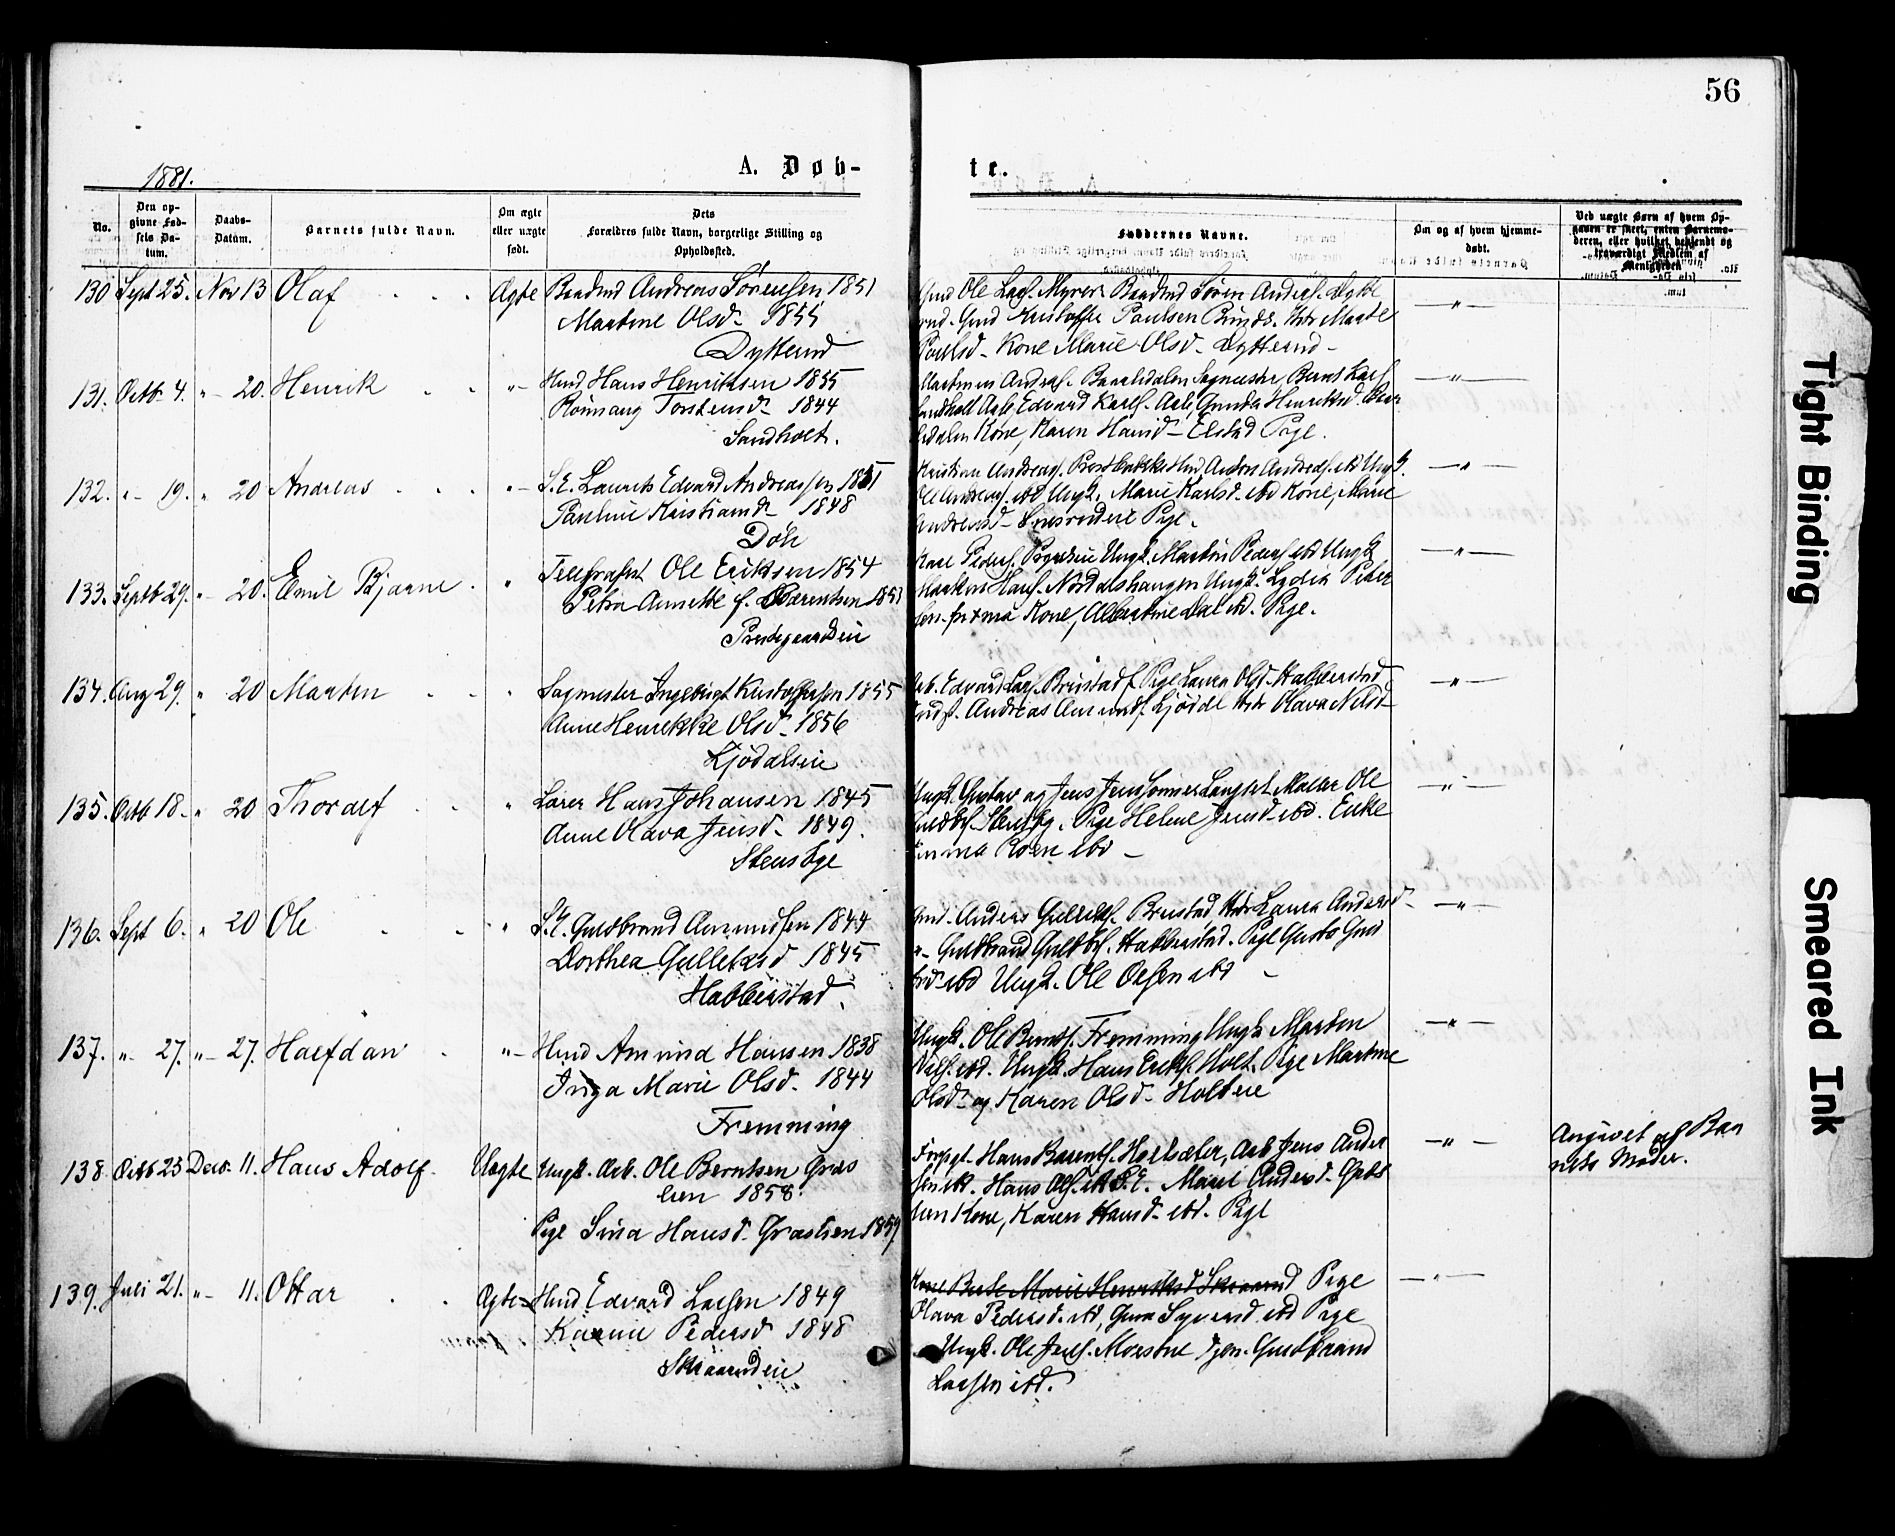 56
1881.
A. Døb-
te.
No.
Den op-
givne Fød-
sels Da-
tum.
Daabs-
Datum.
Barnets fulde Navn.
Om ægte
eller uægte
født.
Dets
Forældres fulde Navn, borgerlige Stilling og
Opholdssted.
Faddernes Navne.
Om og af hvem hjemme-
døbt.
Ved uægte Børn af hvem Op-
gaven er skeet, enten Barnemo-
deren, eller hvilket bekjendt og
troværdigt Medlem af
Menigheden
130 Sept 25. Nov 13 Olaf Ægte Baadmd Andreas Sørensen 1851
Martine Olsd. 1855
Dytterud
Gmd Ole Lars. Myrer Baadmd Søren Anders. Dytte
rud. Gmd Kristoffer Paulsen Marte
Paulsd - Kone Marie Olsd - Dytterud -
131. Octb 4. " - 20. Henrik " - Hmd Hans Henriksen 1855
Torstensd - 1844
Sandholt.
Martinius Andreas. Sagmester, Bernt Karls
Sandholt Arb, Edvard Karls. Arb, Gunda Henriksd
dalen Kone, Karen Hansd - Elstad Pige.
132. " - 19. " 20 Andreas " - S.E. Laurits Edvard Andreassen 1851
Pauline Kristiansd - 1848
Døh
Kristian Andreas. Anton Andreas. ibd Ungk.
Ole Andreas. ibd Ungk. Marie Karlsd. ibd Kone, Marie
Andreasd - Pige.
133. Septb 29. " - 20. Emil Bjarne " Telegrafist Ole Eriksen 1854
Petra Annette f. Barentsen 1851
Prestegaardseie
Karl Peders. Ungk. Martin Peders ibd Ungk
Hans. Nordalshaugen Ungk. Lydia Peter
sen. Kone, Albertine Dal ibd. Pige.
134. Aug 29. " 20 Marten " Sagmester Ingebrigt Kristoffersen 1855
Anne Henrikke Olsd. 1856
Ljødalseie
Arb. Edvard Lars. Brustad f. Pige Laura Olsd. Habberstad
Andreas Amunds. Ljødal Olava Nilsd -
135. Octb 18. " 20 Thoralf " Lærer Hans Johansen 1845
Anne Olava Jensd. 1849.
Stensbye
Ungk. Gustav og Jens Jenssønner Langset Maler Ole
Guldbrs. Stensbg. Pige Helene Jensd ibd. Enke
Emma Roen ibd -
136. Sept 6. " 20 Ole " S.E. Guldbrand Amundsen 1844
Dorthea Gulliksd 1845
Habberstad.
Gmd. Anders Gulliks. Brustad Laura Andersd -
" - Guldbrand Guldbrs. Habberstad. Pige Gusta
ibd Ungk. Ole Olsen ibd -
137. " - 27. " - 27. Halfdan " - Hmd Amund Hansen 1838
Inga Marie Olsd. 1844
Fremming
Ungk. Ole Bernts. Fremming Ungk Marten
Nils. ibd. Ungk. Hans Eriks. Holt. Pige Martine
Olsd - og Karen Olsd - Holteie
138 Octb 23 Decb. 11. Hans Adolf. Uægte Ungk. Arb. Ole Berntsen Græs
lien 1858.
Pige Sina Hansd. Græslien 1859
Hans Barents. Arb Jens Ander
sen ibd. Hans Ols. ibd S.E. Marie Andersd. Græs
lien Kone, Karen Hansd - ibd. Pige
Angivet af Bar
nets Moder.
139. Juli 21. " - 11. Ottar Ægte Hmd Edvard Larsen 1849
Karine Pedersd 1848
Skraarudeie
Kone Berte Marie Henriksd Skraarud Pige
Olava Pedersd. ibd, Syversd ibd Pige
Ungk. Ole Jens. Morstue Guldbrand
Larsen ibd.
Tight Binding
Smeared Ink